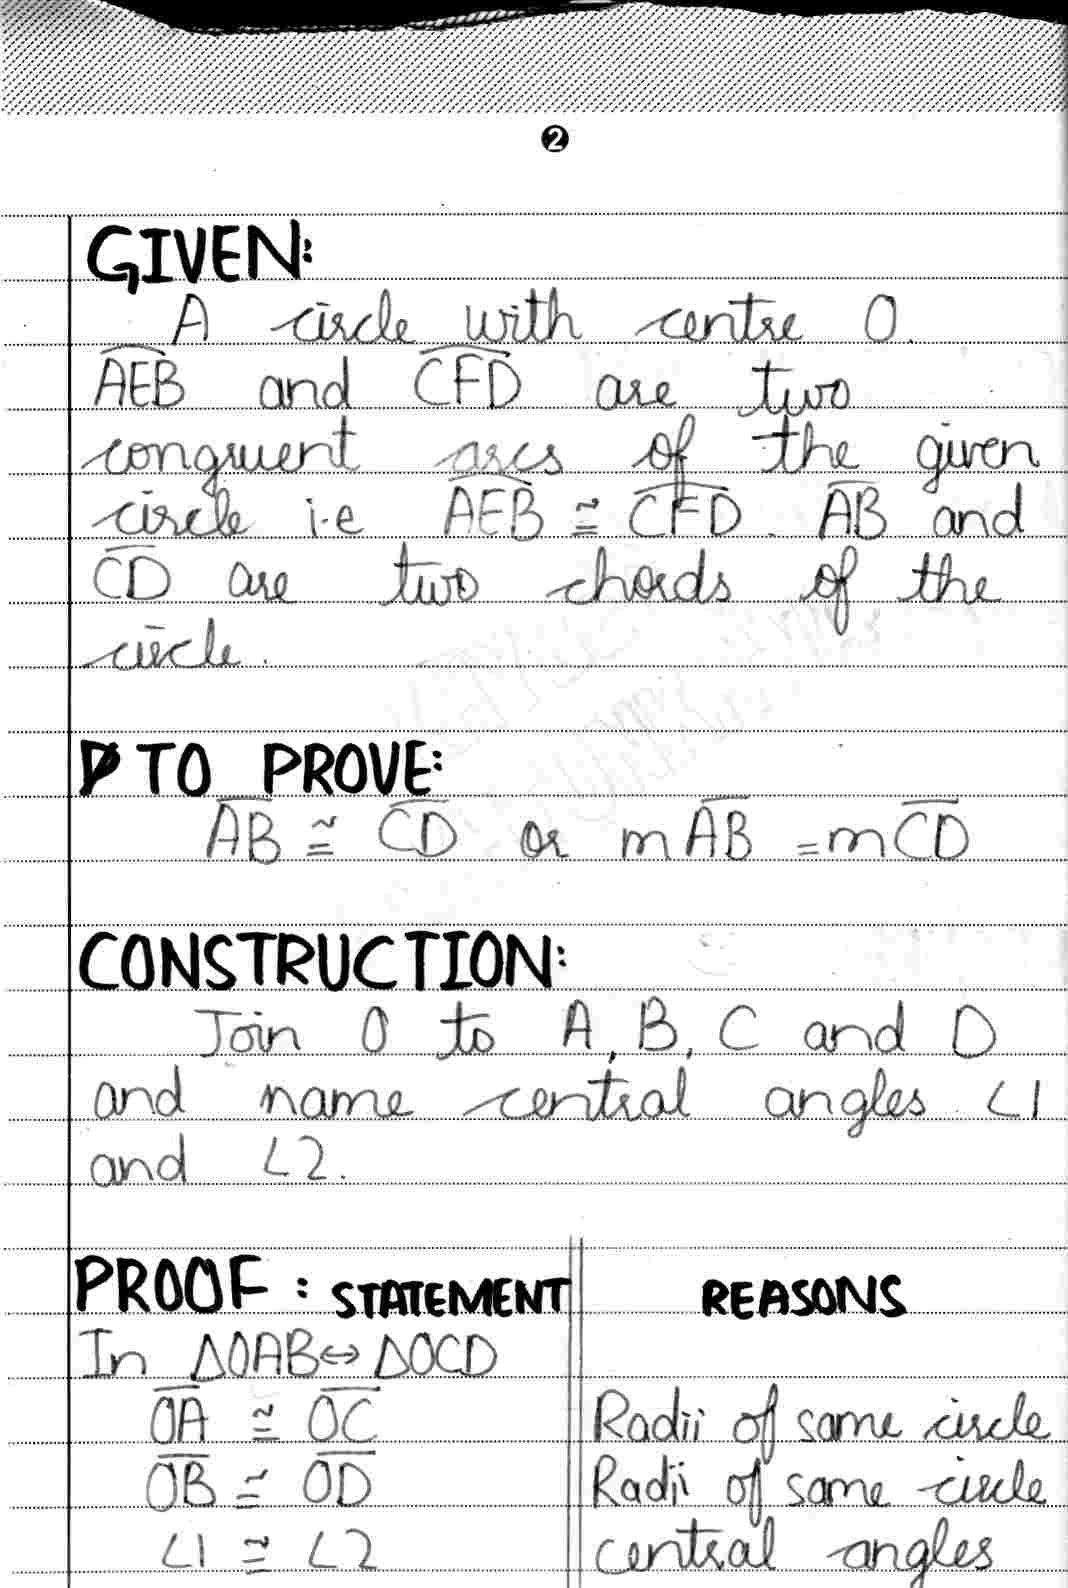 2
GIVEN:
A circle with centre O.
AEB and CFD are two
congruent arcs of the given
circle i.e AEB ≅ CFD. AB and
CD are two chords of the
circle.
TO PROVE:
AB ≅ CD or mAB = mCD
CONSTRUCTION:
Join O to A, B, C and D
and name central angles ∠1
and ∠2.
PROOF: STATEMENT REASONS
In ΔOAB↔ΔOCD
OA ≅ OC Radii of same circle
OB ≅ OD Radii of same circle
∠1 ≅ ∠2 central angles